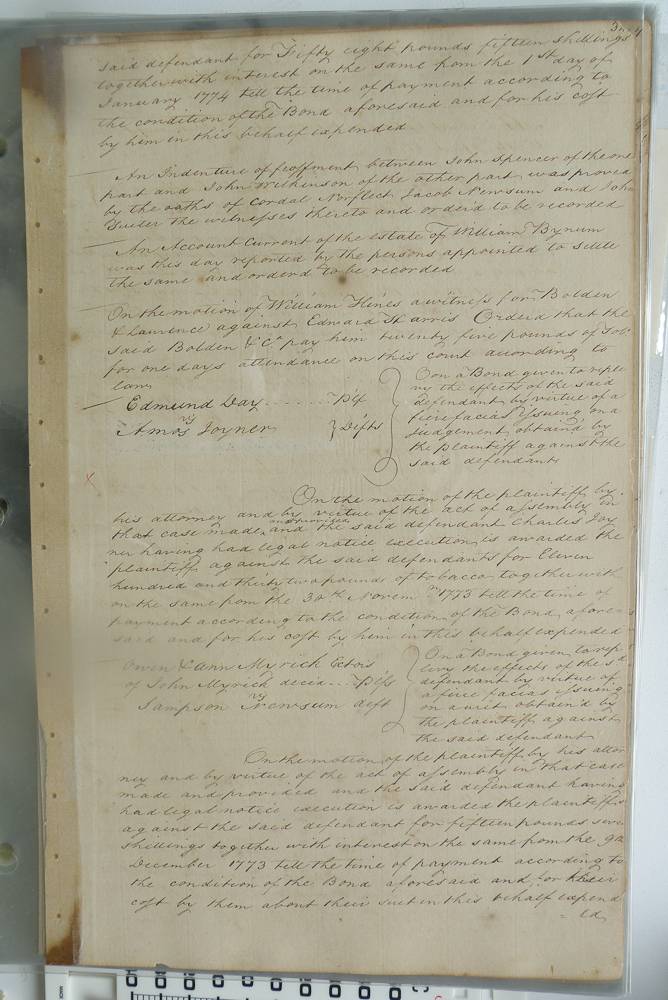 said defendant for Fifty eight pounds fifteen shillings
together with interest on the same from the 1st day of
January 1774 till the time of payment according to
the condition of the Bond aforesaid and for his cost
by him in this behalf expended
An Indenture of feoffment between John Spencer of the one
part and John Wilkinson of the other part was proved
by the oaths of Cordal Norfleet Jacob Newsum and John
the witnesses thereto and orderd to be recorded
An Account Current of the estate of William Bynum
was this day reported by the persons appointed to settle
the same and orderd to be recorded
On the motion of William Hines a witness for Bolden
& Laurence against Edward Harris Orderd that the
said Bolden & Co pay him twenty five pounds of Tob:
for one days attendance on this court according to
law
Edmund Day Plf
vs
Amos Joyner Defts
On a Bond given to reple
vy the effects of the said
defendant by virtue of a
fierefacias Issuing on a
Judgement obtaind by
the plaintiff against the
said defendant
On the motion of the plaintiff by
his attorney and by virtue of the act of assembly in
that case made and provided and the said defendant Charles Joy
ner having had legal notice execution is awarded the
plaintiff against the said defendants for Eleven
hundred and thirty two pounds of tobacco together with
on the same from the 30th Novem 1773 till the time of
payment according to the condition of the Bond afore
said and for his cost by him in this behalf expended
Owen & Ann Myrick Extors
of John Myrick decd Plfs
vs
Sampson Newsum deft
On a Bond given to rep
levy the effects of the sd
defendant by virtue of
a fiere facias Issuing
on a writ obtain'd by
the plaintiff against
the said defendant
On the motion of the plaintiff by his attor
ney and by virtue of the act of assembly in that case
made and provided and the said defendant having
had legal notice execution is awarded the plaintiffs
against the said defendant for fifteen pounds
shillings together with interest on the same from the 9th
December 1773 till the time of payment according to
the condition of the Bond aforesaid and for their
cost by them about their suit in this behalf expend
=ed